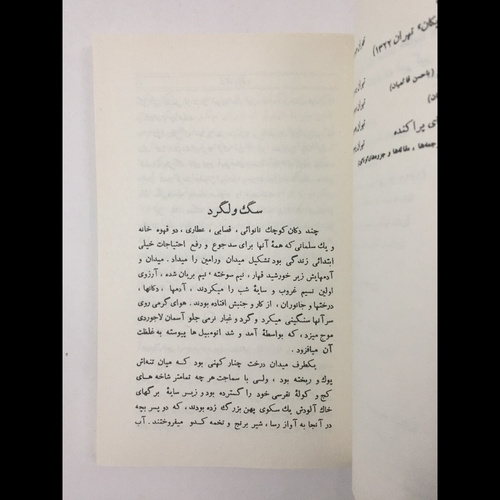 سگ ولگرد
چند دکان کوچک نانوائی، قصابی، عطاری، دو قهوه خانه
و یک سلمانی که همهٔ آنها برای سد جوع و رفع احتیاجات خیلی
ابتدائی زندگی بود تشکیل میدان ورامین را میداد. میدان و
آدمهایش زیر خورشید قهار، نیم سوخته، نیم بریان شده، آرزوی
اولین نسیم غروب و سایهٔ شب را میکردند، آدمها، دکانها،
درختها و جانوران، از کار و جنبش افتاده بودند. هوای گرمی روی
سر آنها سنگینی میکرد و گرد و غبار نرمی جلو آسمان لاجوردی
موج میزد، که بواسطهٔ آمد و شد اتومبیل‌ها پیوسته به غلظت
آن میافزود.
یکطرف میدان درخت چنار کهنی بود که میان تنه‌اش
پوک و ریخته بود، ولی با سماجت هر چه تمامتر شاخه های
کج و کولهٔ نقرسی خود را گسترده بود و زیر سایهٔ برگهای
خاک آلودش یک سکوی پهن بزرگ زده بودند، که دو پسر بچه
در آنجا به آواز رسا، شیر برنج و تخمه کدو میفروختند. آب
تهران ۱۳۲۲)
(باحسن قائمیان)
پراکنده